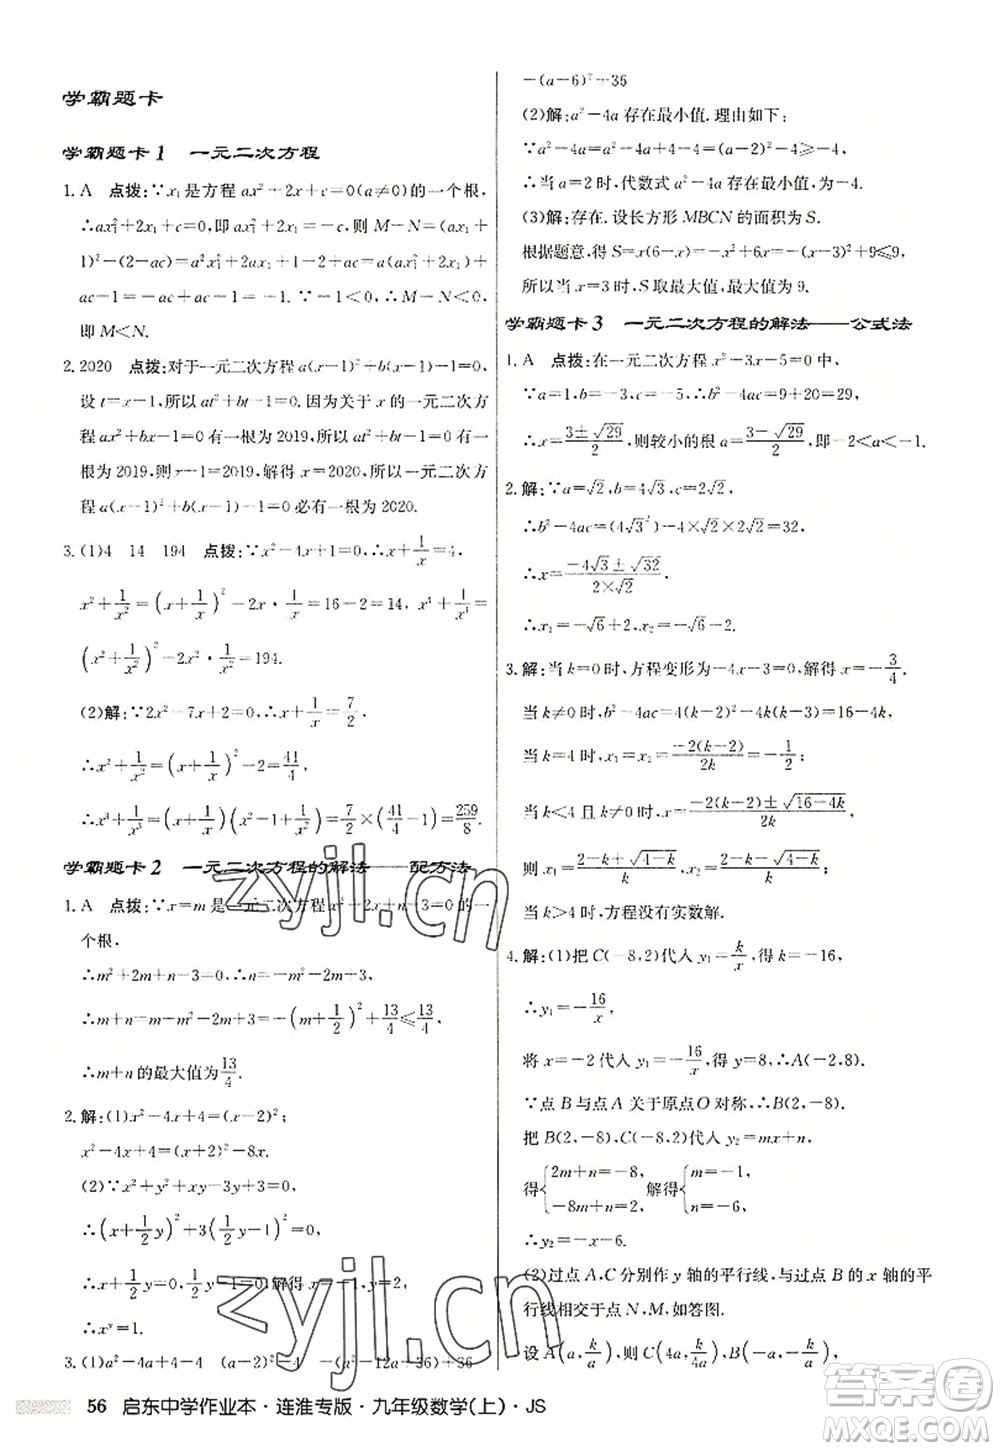 学霸题卡
学霸题卡1 一元二次方程
1. A 点拨:∵x₁是方程ax²+2x+c=0(a≠0)的一个根,
∴ax₁²+2x₁+c=0,即ax₁²+2x₁=-c,则M-N=(ax₁+
1)²-(2-ac)=a²x₁²+2ax₁+1-2+ac=a(ax₁²+2x₁)+
ac-1=-ac+ac-1=-1.∵-1<0,∴M-N<0,
即M<N.
2. 2020 点拨:对于一元二次方程a(x-1)²+b(x-1)=0,
设t=x-1,所以at²+bt-1=0.因为关于x的一元二次方
程ax²+bx-1=0有一根为2019,所以at²+bt-1=0有一
根为2019,则x-1=2019,解得x=2020,所以一元二次方
程a(x-1)²+b(x-1)-1=0必有一根为2020.
3. (1)4 14 194 点拨:∵x²-4x+1=0,∴x+1/x=4,
x²+1/x²=(x+1/x)²-2x·1/x=16-2=14,x⁴+1/x⁴=
(x²+1/x²)²-2x²·1/x²=194.
(2)解:∵2x²-7x+2=0,∴x+1/x=7/2,
∴x²+1/x²=(x+1/x)²-2=41/4,
∴x³+1/x³=(x+1/x)(x²+1/x²-1)=7/2×(41/4-1)=259/8.
学霸题卡2 一元二次方程的解法——配方法
1. A 点拨:∵x=m是一元二次方程x²+2x+n-3=0的一
个根,
∴m²+2m+n-3=0,∴n=-m²-2m+3,
∴m+n=-m²-m+3=-(m+1/2)²+13/4≤13/4,
∴m+n的最大值为13/4.
2. 解:(1)x²-4x+4=(x-2)²;
x²-4x+4=(x+2)²-8x.
(2)∵x²+xy+y²-3y+3=0,
∴(x+1/2y)²+3(1/2y-1)²=0,
∴x+1/2y=0,1/2y-1=0,解得x=-1,y=2,
∴xʸ=1.
3. (1)a²-4a+4-4 (a-2)²-4 -(a²-12a+36)+36
-(a-6)²+36
(2)解:a²-4a存在最小值.理由如下:
∵a²-4a=a²-4a+4-4=(a-2)²-4≥-4,
∴当a=2时,代数式a²-4a存在最小值,为-4.
(3)解:存在.设长方形MBCN的面积为S.
根据题意,得S=x(6-x)=-x²+6x=-(x-3)²+9≤9,
所以当x=3时,S取最大值,最大值为9.
学霸题卡3 一元二次方程的解法——公式法
1. A 点拨:在一元二次方程x²-3x-5=0中,
∵a=1,b=-3,c=-5,∴b²-4ac=9+20=29,
∴x=(3±√29)/2,则较小的根a=(3-√29)/2,即-2<a<-1.
2. 解:∵a=√2,b=4√3,c=2√2,
∴b²-4ac=(4√3)²-4×√2×2√2=32,
∴x=(-4√3±√32)/(2×√2),
∴x₁=-√6+2,x₂=-√6-2.
3. 解:当k=0时,方程变形为-4x-3=0,解得x=-3/4.
当k≠0时,b²-4ac=4(k-2)²-4k(k-3)=16-4k,
当k=4时,x₁=x₂=-2(k-2)/2k=-1/2;
当k<4且k≠0时,x=(-2(k-2)±√(16-4k))/2k,
则x₁=(2-k+√(4-k))/k,x₂=(2-k-√(4-k))/k,
当k>4时,方程没有实数解.
4. 解:(1)把C(-8,2)代人y₁=k/x,得k=-16,
∴y₁=-16/x,
将x=-2代人y₁=-16/x,得y=8,∴A(-2,8).
∵点B与点A关于原点O对称,∴B(2,-8).
把B(2,-8),C(-8,2)代人y₂=mx+n,
得{2m+n=-8,-8m+n=2,解得{m=-1,n=-6,
∴y₂=-x-6.
(2)过点A,C分别作y轴的平行线,与过点B的x轴的平
行线相交于点N,M,如答图.
设A(a,k/a),则B(-a,-k/a),C(4a,k/4a),
56 启东中学作业本·连淮专版·九年级数学(上)·JS
zyjl.cn
zyjl.cn
答案圈
MXQE.COM